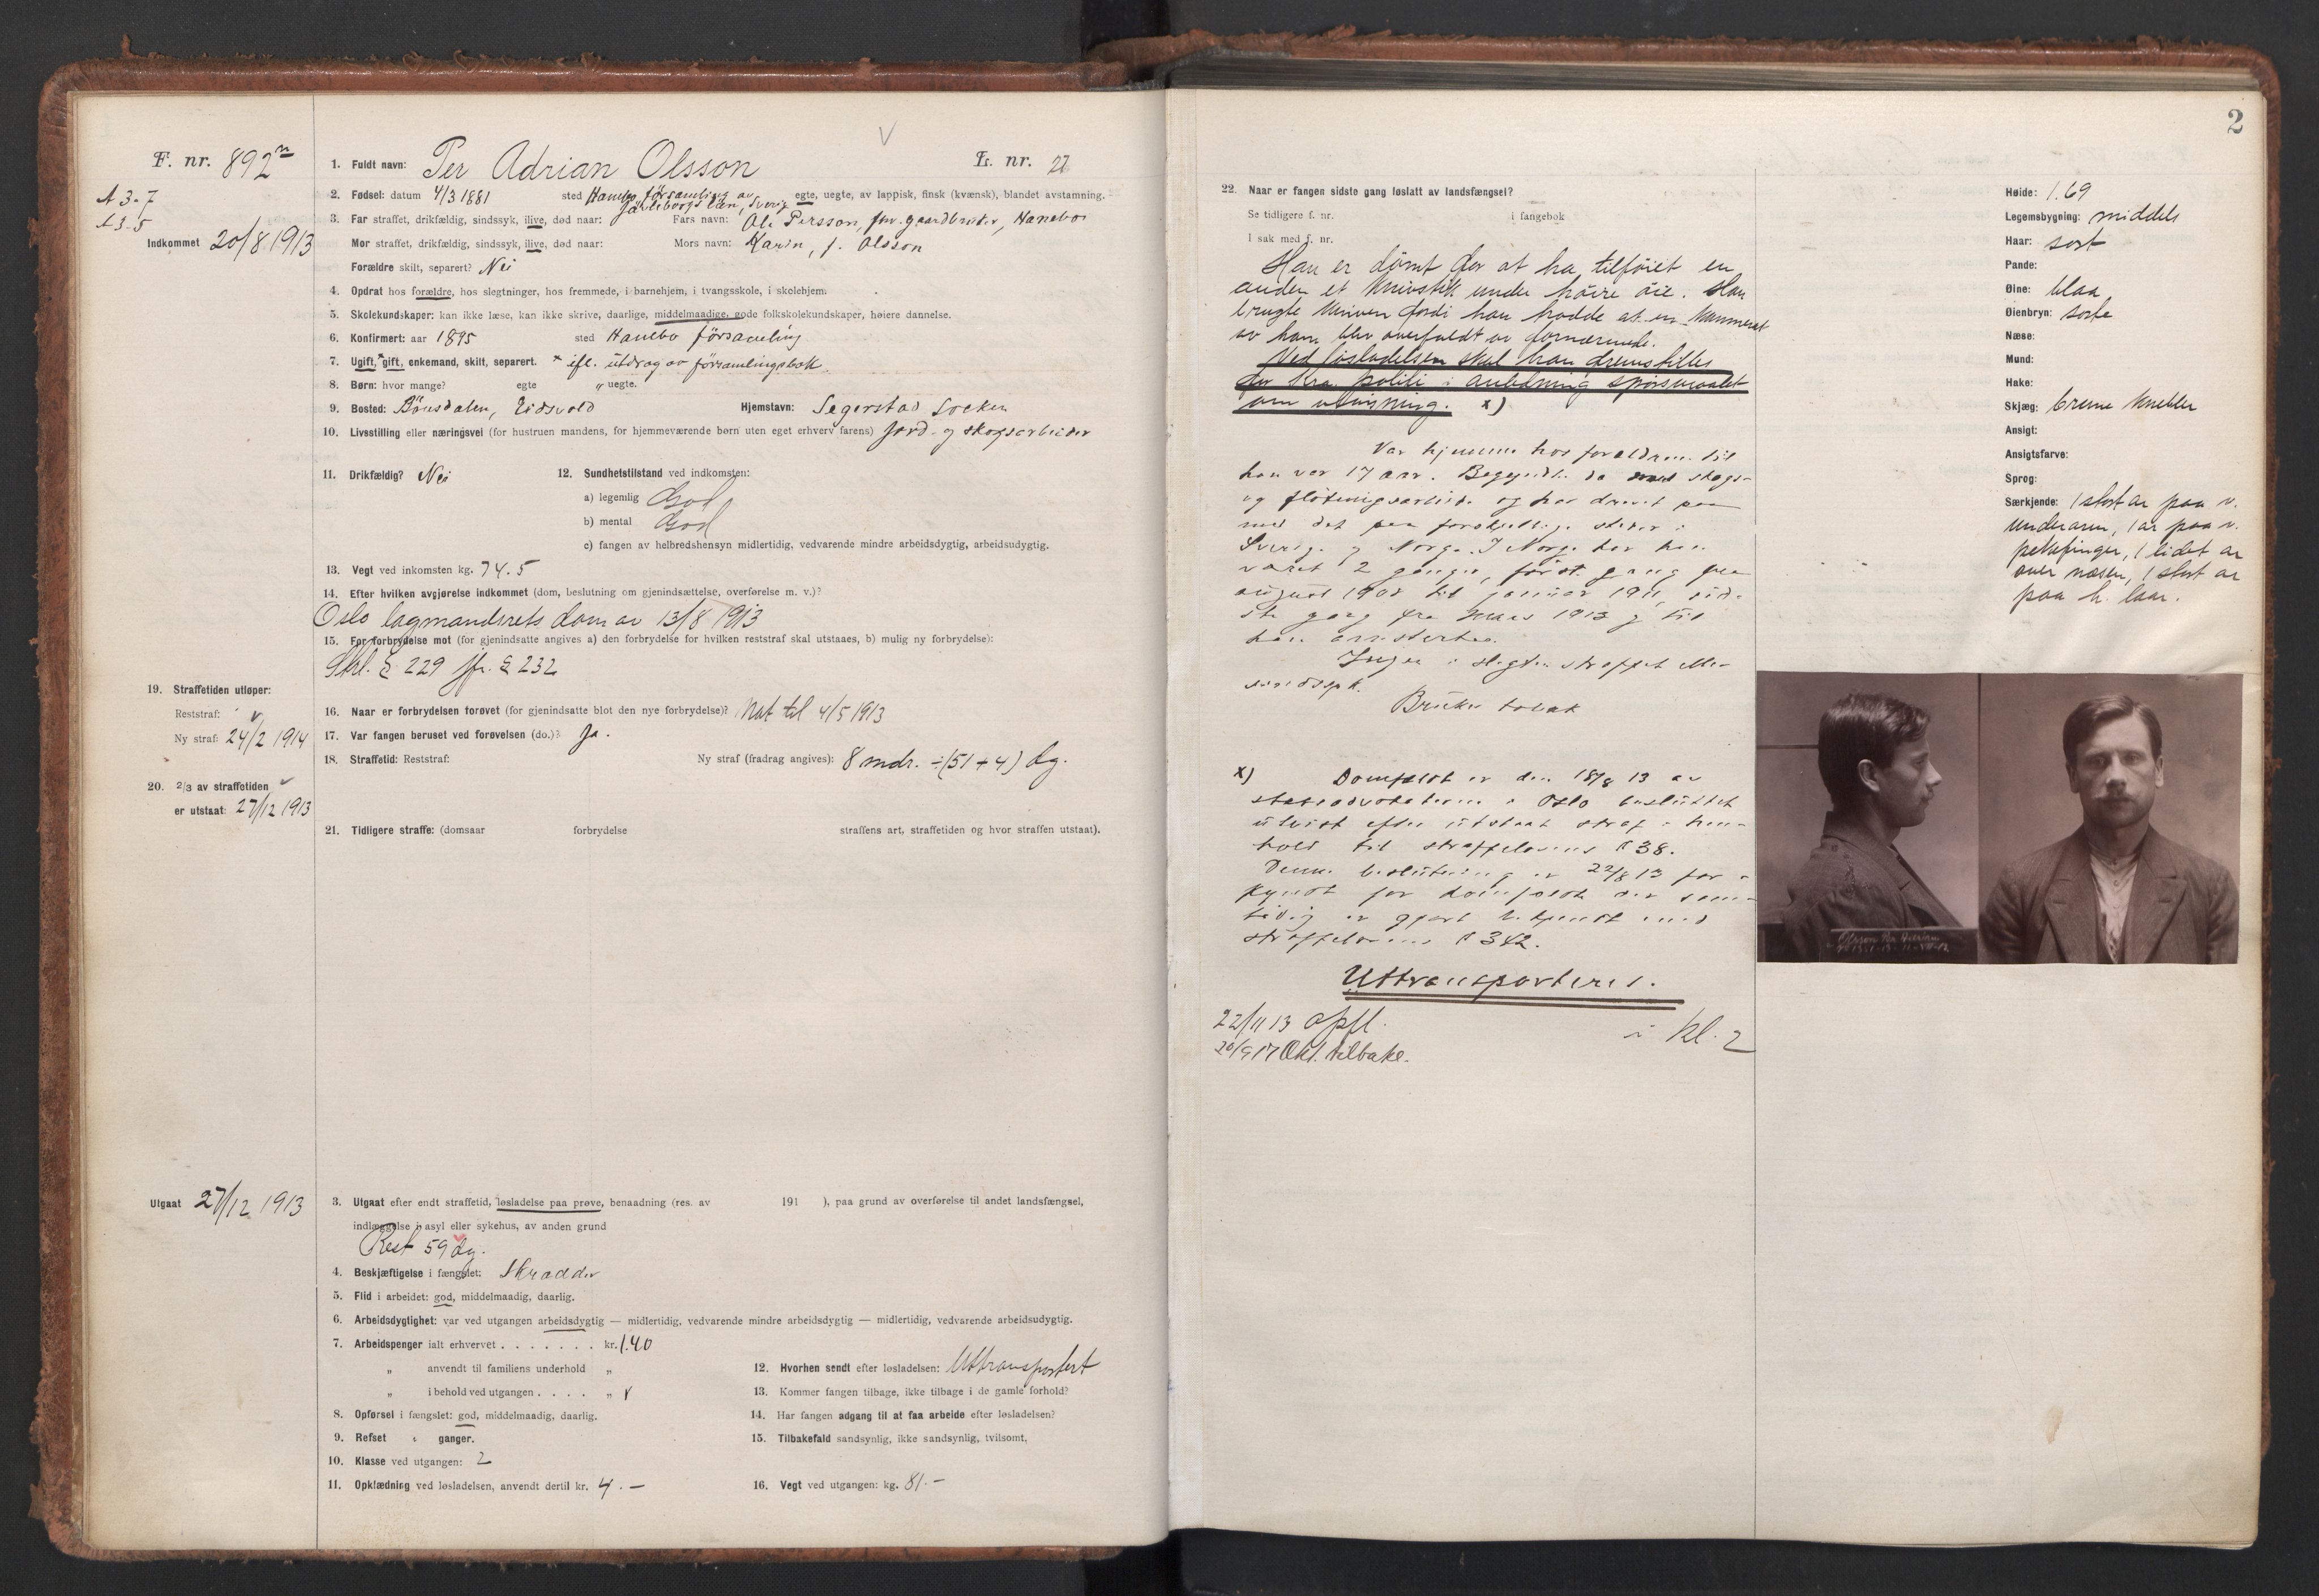 F. nr. 892
A 3-7
A 3-5
Indkommet 20/8 1913
1. Fuldt navn: Per Adrian Olsson
L. nr. 22
2. Fødsel: datum 4/3 1881 sted Hanebo församling av egte, uegte, av lappisk, finsk (kvænsk), blandet avstamning.
Gäfleborgs län, Sverig
3. Far straffet, drikfældig, sindssyk, ilive, død naar: Fars navn: Ole Persson, fhv. gaardbruker, Hanebo
Mor straffet, drikfældig, sindssyk, ilive, død naar: Mors navn: Karin, f. Olsson
Forældre skilt, separert? Nei
4. Opdrat hos forældre, hos slegtninger, hos fremmede, i barnehjem, i tvangsskole, i skolehjem.
5. Skolekundskaper: kan ikke læse, kan ikke skrive, daarlige, middelmaadige, gode folkskolekundskaper, høiere dannelse.
6. Konfirmert: aar 1895 sted Hanebo församling
7. Ugift, × gift, enkemand, skilt, separert. × ifl. utdrag av församlingsbok.
8. Børn: hvor mange? egte " uegte.
9. Bosted: Bönsdalen, Eidsvold Hjemstavn: Segerstad Socken
10. Livsstilling eller næringsvei (for hustruen mandens, for hjemmeværende børn uten eget erhverv farens) Jord- og skogsarbeider
11. Drikfældig? Nei
12. Sundhetstilstand ved indkomsten:
a) legemlig God
b) mental God
c) fangen av helbredshensyn midlertidig, vedvarende mindre arbeidsdygtig, arbeidsudygtig.
13. Vegt ved inkomsten kg. 74.5
14. Efter hvilken avgjørelse indkommet (dom, beslutning om gjenindsættelse, overførelse m. v.)?
Oslo lagmandsrets dom av 13/8 1913
15. For forbrydelse mot (for gjenindsatte angives a) den forbrydelse for hvilken reststraf skal utstaaes, b) mulig ny forbrydelse):
Strl. § 229 jfr. § 232
16. Naar er forbrydelsen forøvet (for gjenindsatte blot den nye forbrydelse)? Nat til 4/5 1913
17. Var fangen beruset ved forøvelsen (do.)? Ja.
18. Straffetid: Reststraf: Ny straf (fradrag angives): 8 mdr. ÷ (51 + 4) dg.
19. Straffetiden utløper:
Reststraf:
Ny straf: 24/2 1914
20. 2/3 av straffetiden
er utstaat: 27/12 1913
21. Tidligere straffe: (domsaar forbrydelse straffens art, straffetiden og hvor straffen utstaat).
Utgaat 27/12 1913
3. Utgaat efter endt straffetid, løsladelse paa prøve, benaadning (res. av 191 ), paa grund av overførelse til andet landsfængsel,
indlæggelse i asyl eller sykehus, av anden grund
Rest 59 dg.
4. Beskjæftigelse i fængslet: Skrædder
5. Flid i arbeidet: god, middelmaadig, daarlig.
6. Arbeidsdygtighet: var ved utgangen arbeidsdygtig — midlertidig, vedvarende mindre arbeidsdygtig — midlertidig, vedvarende arbeidsudygtig.
7. Arbeidspenger ialt erhvervet . . . . . . . kr. 1.40
" anvendt til familiens underhold "
" i behold ved utgangen . . . . "
8. Opførsel i fængslet: god, middelmaadig, daarlig.
9. Refset ganger.
10. Klasse ved utgangen: 2
11. Opklædning ved løsladelsen, anvendt dertil kr. 4.—
12. Hvorhen sendt efter løsladelsen: Uttransportert
13. Kommer fangen tilbage, ikke tilbage i de gamle forhold?
14. Har fangen adgang til at faa arbeide efter løsladelsen?
15. Tilbakefald sandsynlig, ikke sandsynlig, tvilsomt,
16. Vegt ved utgangen: kg. 81.—
2
22. Naar er fangen sidste gang løslatt av landsfængsel?
Se tidligere f. nr. i fangebok
I sak med f. nr.
Han er dømt for at ha tilføiet en
anden et knivstik under høire øie. Han
brugte kniven fordi han trodde at en kammerat
av ham blev overfaldt av fornærmede.
Ved løsladelsen skal han fremstilles
for Kra. politi i anledning spørsmaalet
om utvisning. x)
Var hjemme hos forældrene til
han var 17 aar. Begyndte da med skogs-
og flötningsarbeide og har drevet paa
med det paa forskjellige steder i
Sverige og Norge. I Norge har han
været 2 ganger, først gang fra
august 1908 til januar 1911, sid-
ste gang fra mars 1913 og til
han arrestertes.
Ingen i slegten straffet eller
sindssyk.
Bruker tobak
x) Domfældt er den 18/8 13 av
statsadvokaterne i Oslo besluttet
utvist efter utstaat straf i hen-
hold til straffelovens § 38.
Denne beslutning er 22/8 13 for-
kyndt for domfældte der sam-
tidig er gjort bekjendt med
straffelovens § 342.
Uttransporteres.
22/11 13 opfl. i kl. 2
20/9 17 Akt. tilbake.
Høide: 1.69
Legemsbygning: middels
Haar: sort
Pande:
Øine: blaa
Øienbryn: sorte
Næse:
Mund:
Hake:
Skjæg: brune knebler
Ansigt:
Ansigtsfarve:
Sprog:
Særkjende: 1 stort ar paa v.
underarm, 1 ar paa v.
pekefinger, 1 lidet ar
over næsen, 1 stort ar
paa h. laar.
Olsson Per Adrian